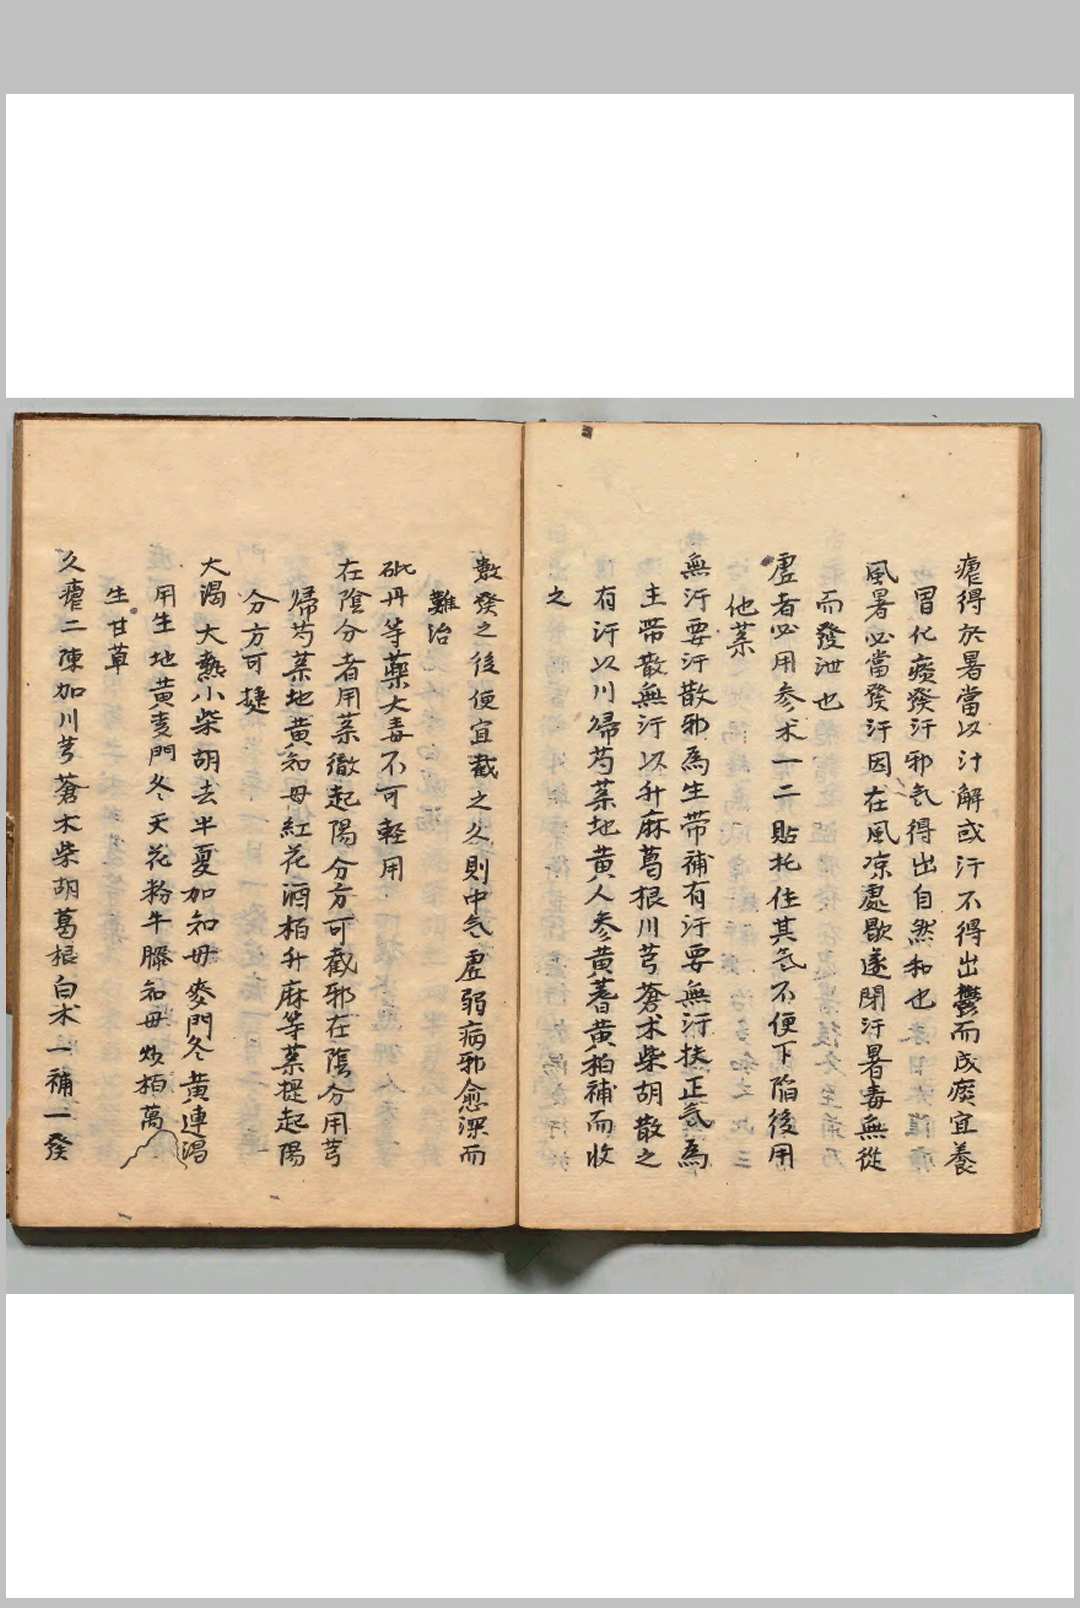 瘧得於暑當以汁解或汗不得出鬱而成痰宜養
胃化痰發汗邪気得出自然和也
風暑必當發汗因在風凉處歇遂閉汗暑毒無從
而發泄也
虚者必用参术一二貼托住其気不便下陷後用
他薬
無汗要汗散邪爲生带補有汗要無汗扶正気爲
主带散無汗以升麻葛根川芎蒼术柴胡散之
有汗以川歸芍薬地黄人参黄蓍黄柏補而收
之
數發之後便宜截之久則中気虚弱病邪愈深而
難治
砒丹等藥大毒不可軽用
在陰分者用薬徹起陽分方可截邪在陰分用芎
歸芍薬地黄知母紅花酒柏升麻等薬提起陽
分方可捷
大渴大熱小柴胡去半夏加知母麥門冬黄連渴
用生地黄麦門冬天花粉牛膝知母炒柏萬
生甘草
久瘧二陳加川芎蒼木柴胡葛根白术一補一發